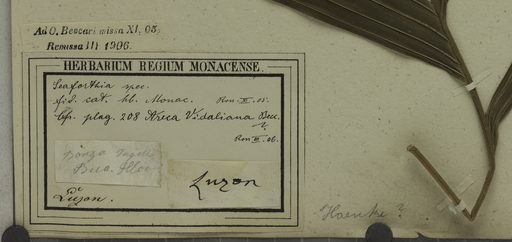 Ad O. Beccari missa XI. 05.
Remissa III 1906.
HERBARIUM REGIUM MONACENSE.
Seaforthia spec.
fid. cat. hb. Monac. Rom. XI. 05.
Cf. plag. 208 Areca Vidaliana Becc.
Rom III. 06.
Bonga
Luzon
Luzon.
Haenke?